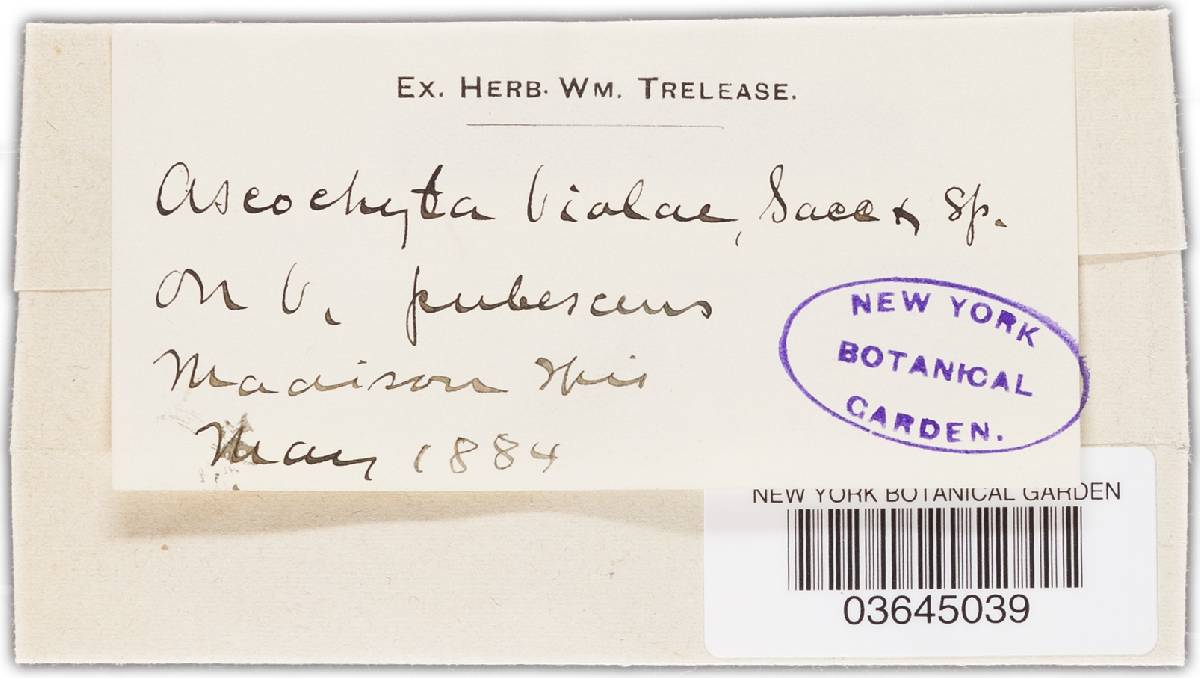 EX. HERB. WM. TRELEASE.
Ascochyta Violae, Sacc & Sp.
On V. pubescens
Madison Wis
May 1884
NEW YORK
BOTANICAL
GARDEN.
NEW YORK BOTANICAL GARDEN
03645039